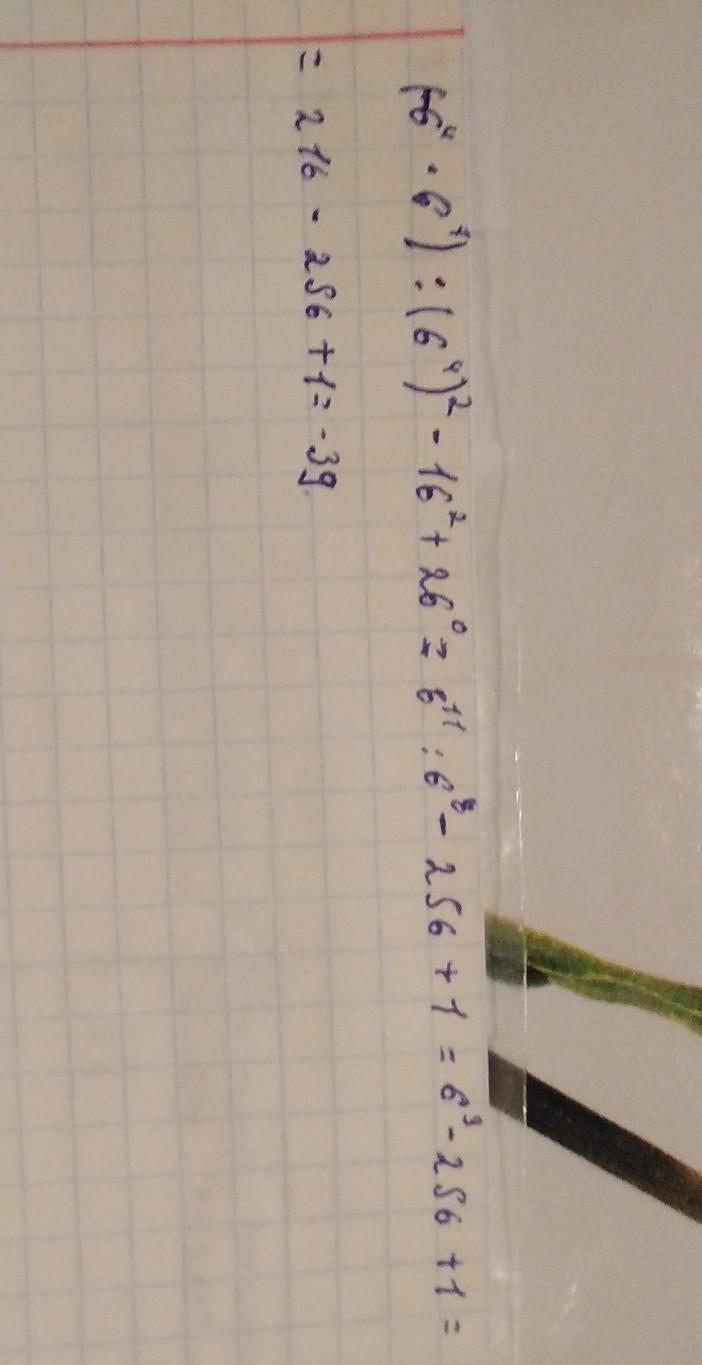 (6⁴ · 6⁷) : (6⁴)² - 16² + 26⁰ = 6¹¹ : 6⁸ - 256 + 1 = 6³ - 256 + 1 =
= 216 - 256 + 1 = -39.